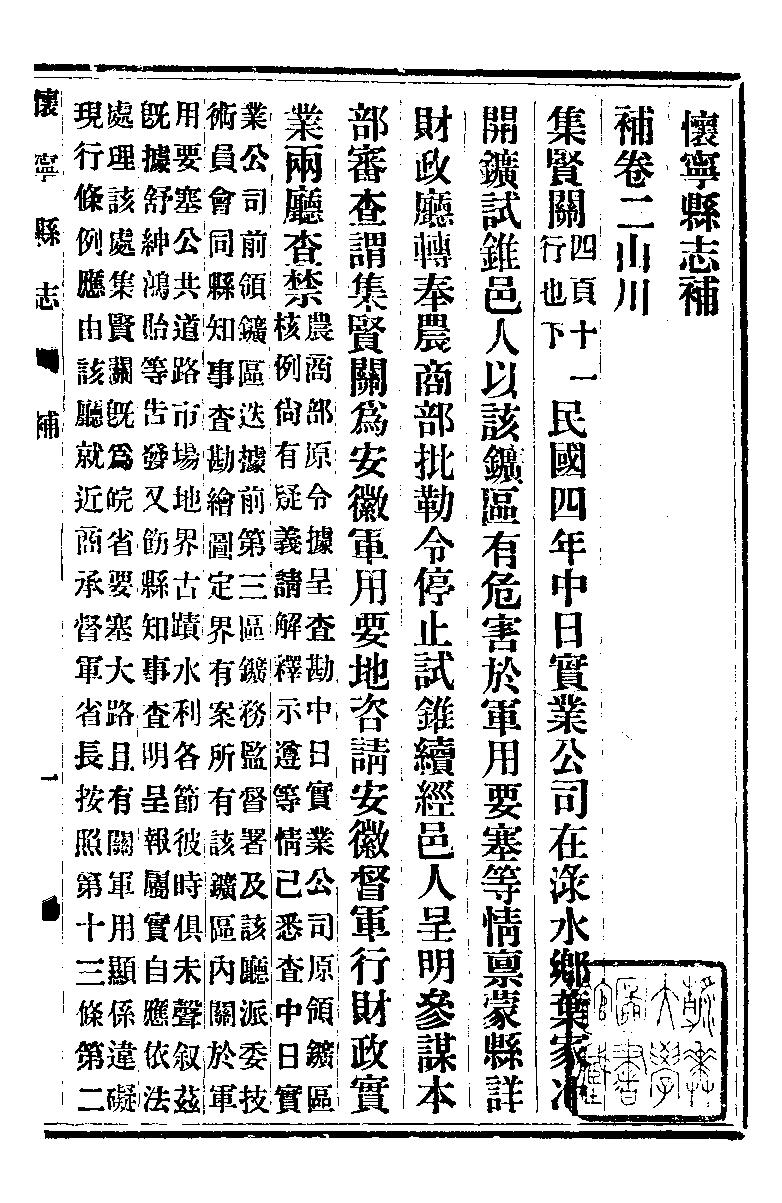 懷寧縣志補
補卷二山川
集賢關四頁十一行也下民國四年中日實業公司在淥水鄉葉家冲
開鑛試錐邑人以該鑛區有危害於軍用要塞等情禀蒙縣詳
財政廳轉奉農商部批勒令停止試錐續經邑人呈明參謀本
部審查謂集賢關爲安徽軍用要地咨請安徽督軍行財政實
業兩廳查禁
農商部原令據呈查勘中日實業公司原領鑛區
核例尙有疑義請解釋示遵等情已悉查中日實
業公司前領鑛區迭據前第三區鑛務監督署及該廳派委技
術員會同縣知事查勘繪圖定界有案所有該鑛區內關於軍
用要塞公共道路市塲地界古蹟水利各節彼時俱未聲叙茲
旣據舒紳鴻貽等吿發又飭縣知事查明呈報屬實自應依法
處理該處集賢關旣爲皖省要塞大路且有關軍用顯係違礙
現行條例應由該廳就近商承督軍省長按照第十三條第二
懷寧縣志 補 一
大學圖書館藏